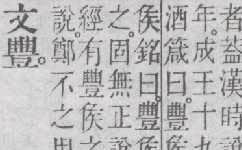 者蓋漢時
年。成王十九
酒箴曰。豐侯
侯銘曰。豐侯
之。固無正說
經有豐侯之
說。鄭不之用
文豐。